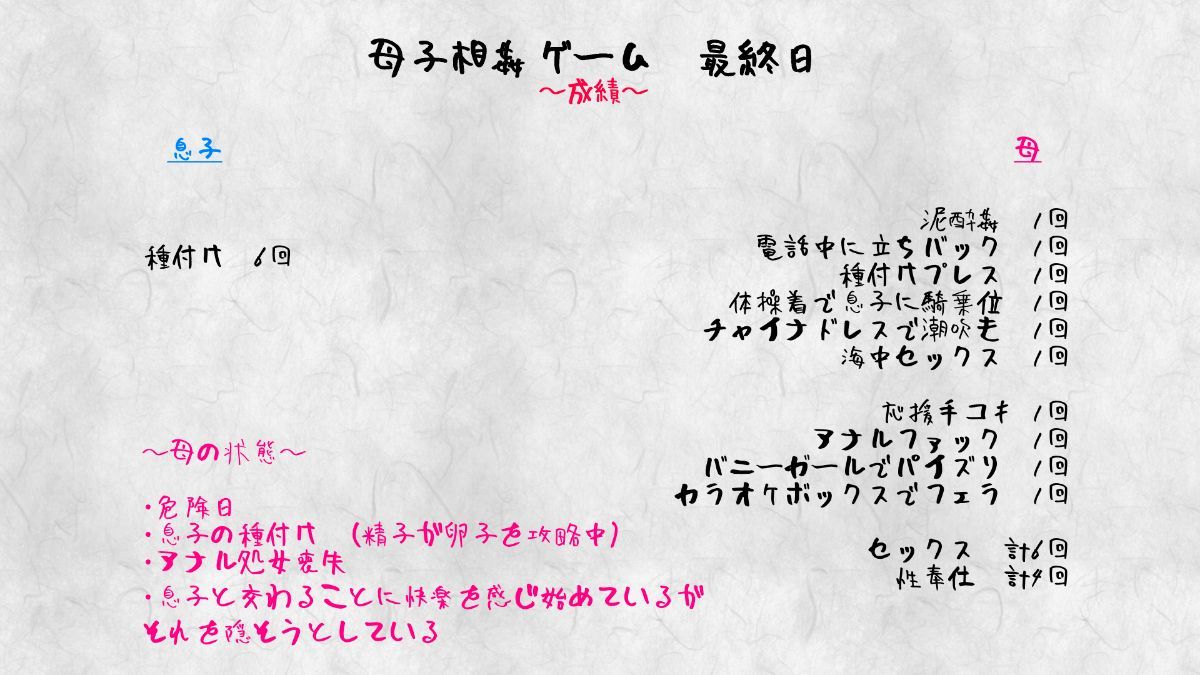 母子相姦ゲーム　最終日
～成績～
息子
母
種付け　6回
泥酔姦　1回
電話中に立ちバック　1回
種付けプレス　1回
体操着で息子に騎乗位　1回
チャイナドレスで潮吹き　1回
海中セックス　1回
応援手コキ　1回
アナルファック　1回
バニーガールでパイズリ　1回
カラオケボックスでフェラ　1回
セックス　計6回
性奉仕　計4回
～母の状態～
・危険日
・息子の種付け　（精子が卵子を攻略中）
・アナル処女喪失
・息子と交わることに快楽を感じ始めているが
それを隠そうとしている